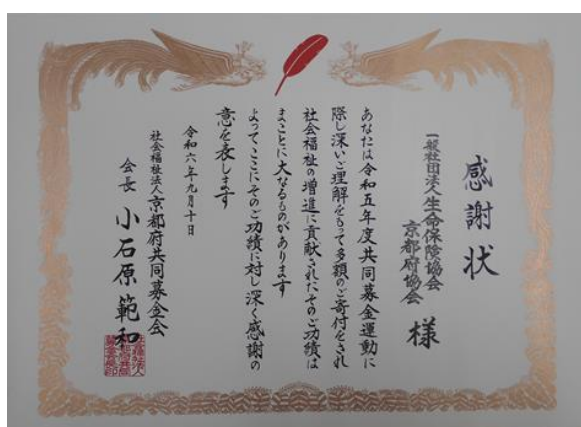 感謝状
一般社団法人生命保険協会
京都府協会 様
あなたは令和五年度共同募金運動に
際し深いご理解をもって多額のご寄付をされ
社会福祉の増進に貢献されたそのご功績は
まことに大なるものがあります
よってここにそのご功績に対し深く感謝の
意を表します
令和六年九月十日
社会福祉法人京都府共同募金会
会長 小石原範和